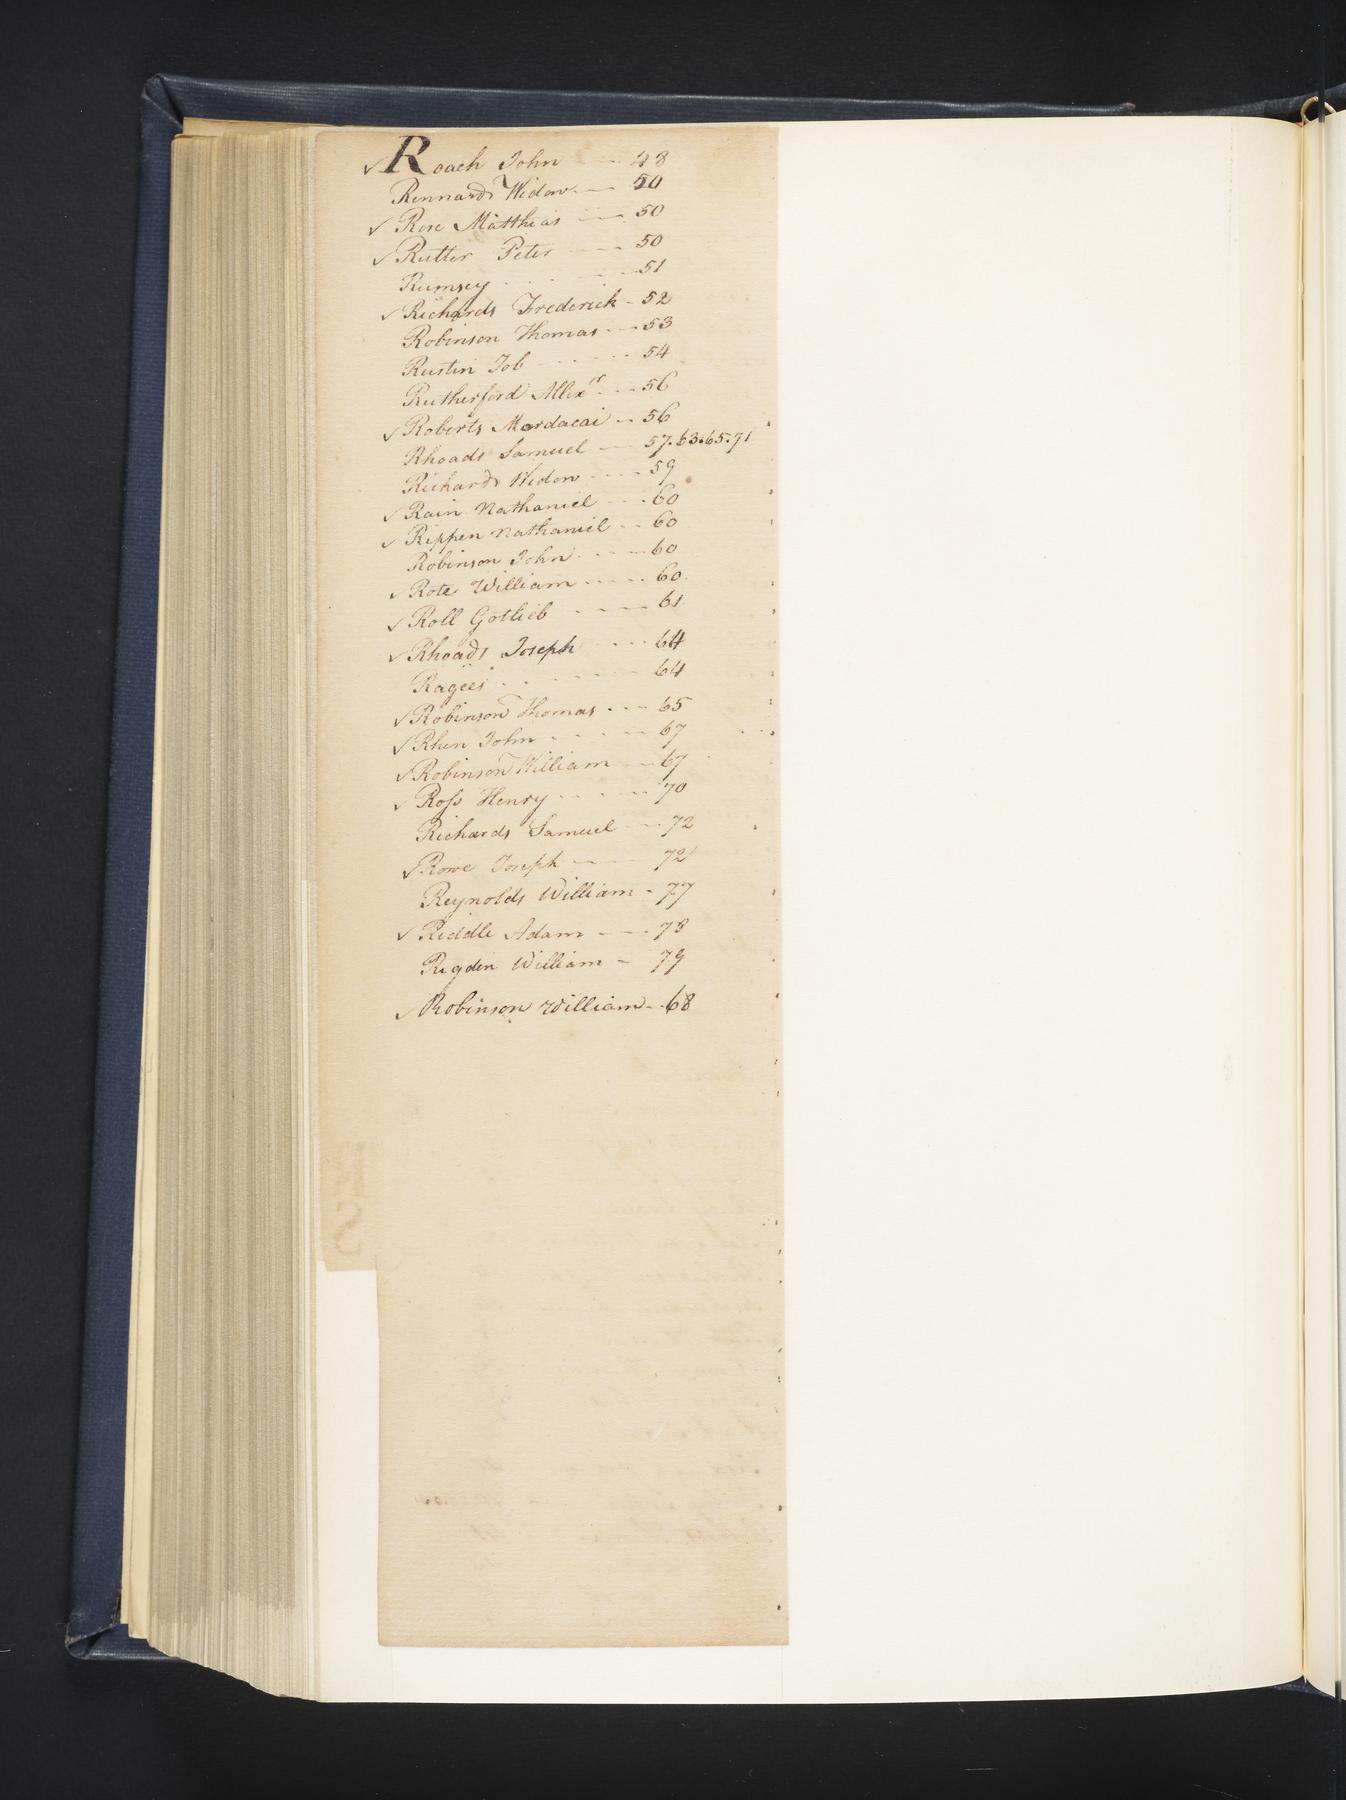 ✓ Roach John --- 48
Rennards Widow --- 50
✓ Rose Matthias --- 50
✓ Rutter Peter --- 50
Rumsey --- 51
✓ Richards Frederick - 52
Robinson Thomas --- 53
Rustin Job --- 54
Rutherford Allexr --- 56
✓ Roberts Mordacai -- 56
Rhoads Samuel --- 57.63.65.71
Richards Widow --- 59
✓ Rain Nathaniel --- 60
✓ Rippen Nathaniel -- 60
Robinson John --- 60
✓ Rote William --- 60
✓ Roll Gotlieb --- 61
✓ Rhoads Joseph --- 64
Ragees --- 64
✓ Robinson Thomas --- 65
✓ Rhen John --- 67
✓ Robinson William -- 67
✓ Ross Henry --- 70
Richards Samuel -- 72
✓ Rowe Joseph --- 72
Reynolds William - 77
✓ Riddle Adam --- 78
Rigden William - 79
✓ Robinson William -- 68